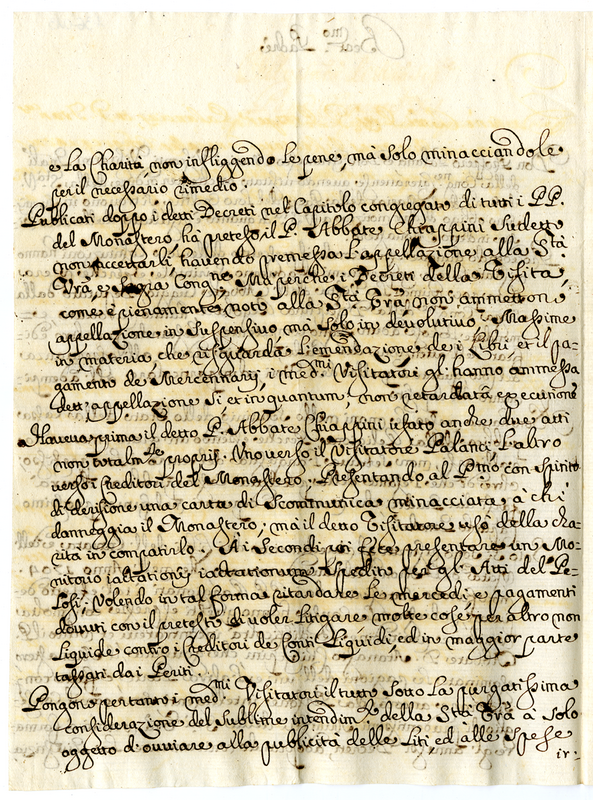 Beat.mo Padre
e La Charità, non infliggendo le pene, mà solo minacciandole
per il necessario rimedio.
Publicati doppo i detti Decreti nel Capitolo congregato di tutti i PP.
del Monastero, hà preteso il P. Abbate Chiappini sudetto
non accettarli, havendo premessa l'appellazione alla S.tà
V.rà, e Sagra Cong.ne. Mà perche i Decreti della Visita,
come è pienamente noto alla S.tà V.rà non ammettono
appellazione in suspensivo mà solo in devolutivo. Massime
in materia che risguarda l'emendazione de i Libri, et il pa-
gamento de Mercennarij, i med.mi Visitatori gl'hanno ammessa
dett'appellazione si et in quantum, non retardata executione
Haveva prima il detto P. Abbate Chiappini usato anche due atti
non totalm.te proprij. Uno verso il Visitatore Palanti, l'altro
verso i Creditori del Monastero. Presentando al P.mo con spirito
di derisione una carta di Scommunica minacciata à chi
danneggia il Monastero; mà il detto Visitatore usò della cha-
rità in compatirlo. A i Secondi poi fece presentare un Mo-
nitorio iactationis iactationum spedito per gl'Atti del Pe-
losi, Volendo in tal forma ritardare le mercedi e pagamenti
dovuti con il pretesto di voler litigare molte cose, per altro non
Liquide contro i Creditori de Conti Liquidi, ed in maggior parte
tassati dai Periti.
Pongono pertanto i med.mi Visitatori il tutto sotto la purgatissima
considerazione del sublime intendim.to della S.tà V.rà à solo
oggetto d'ovviare alla publicità delle Liti, ed alle spese
ir-